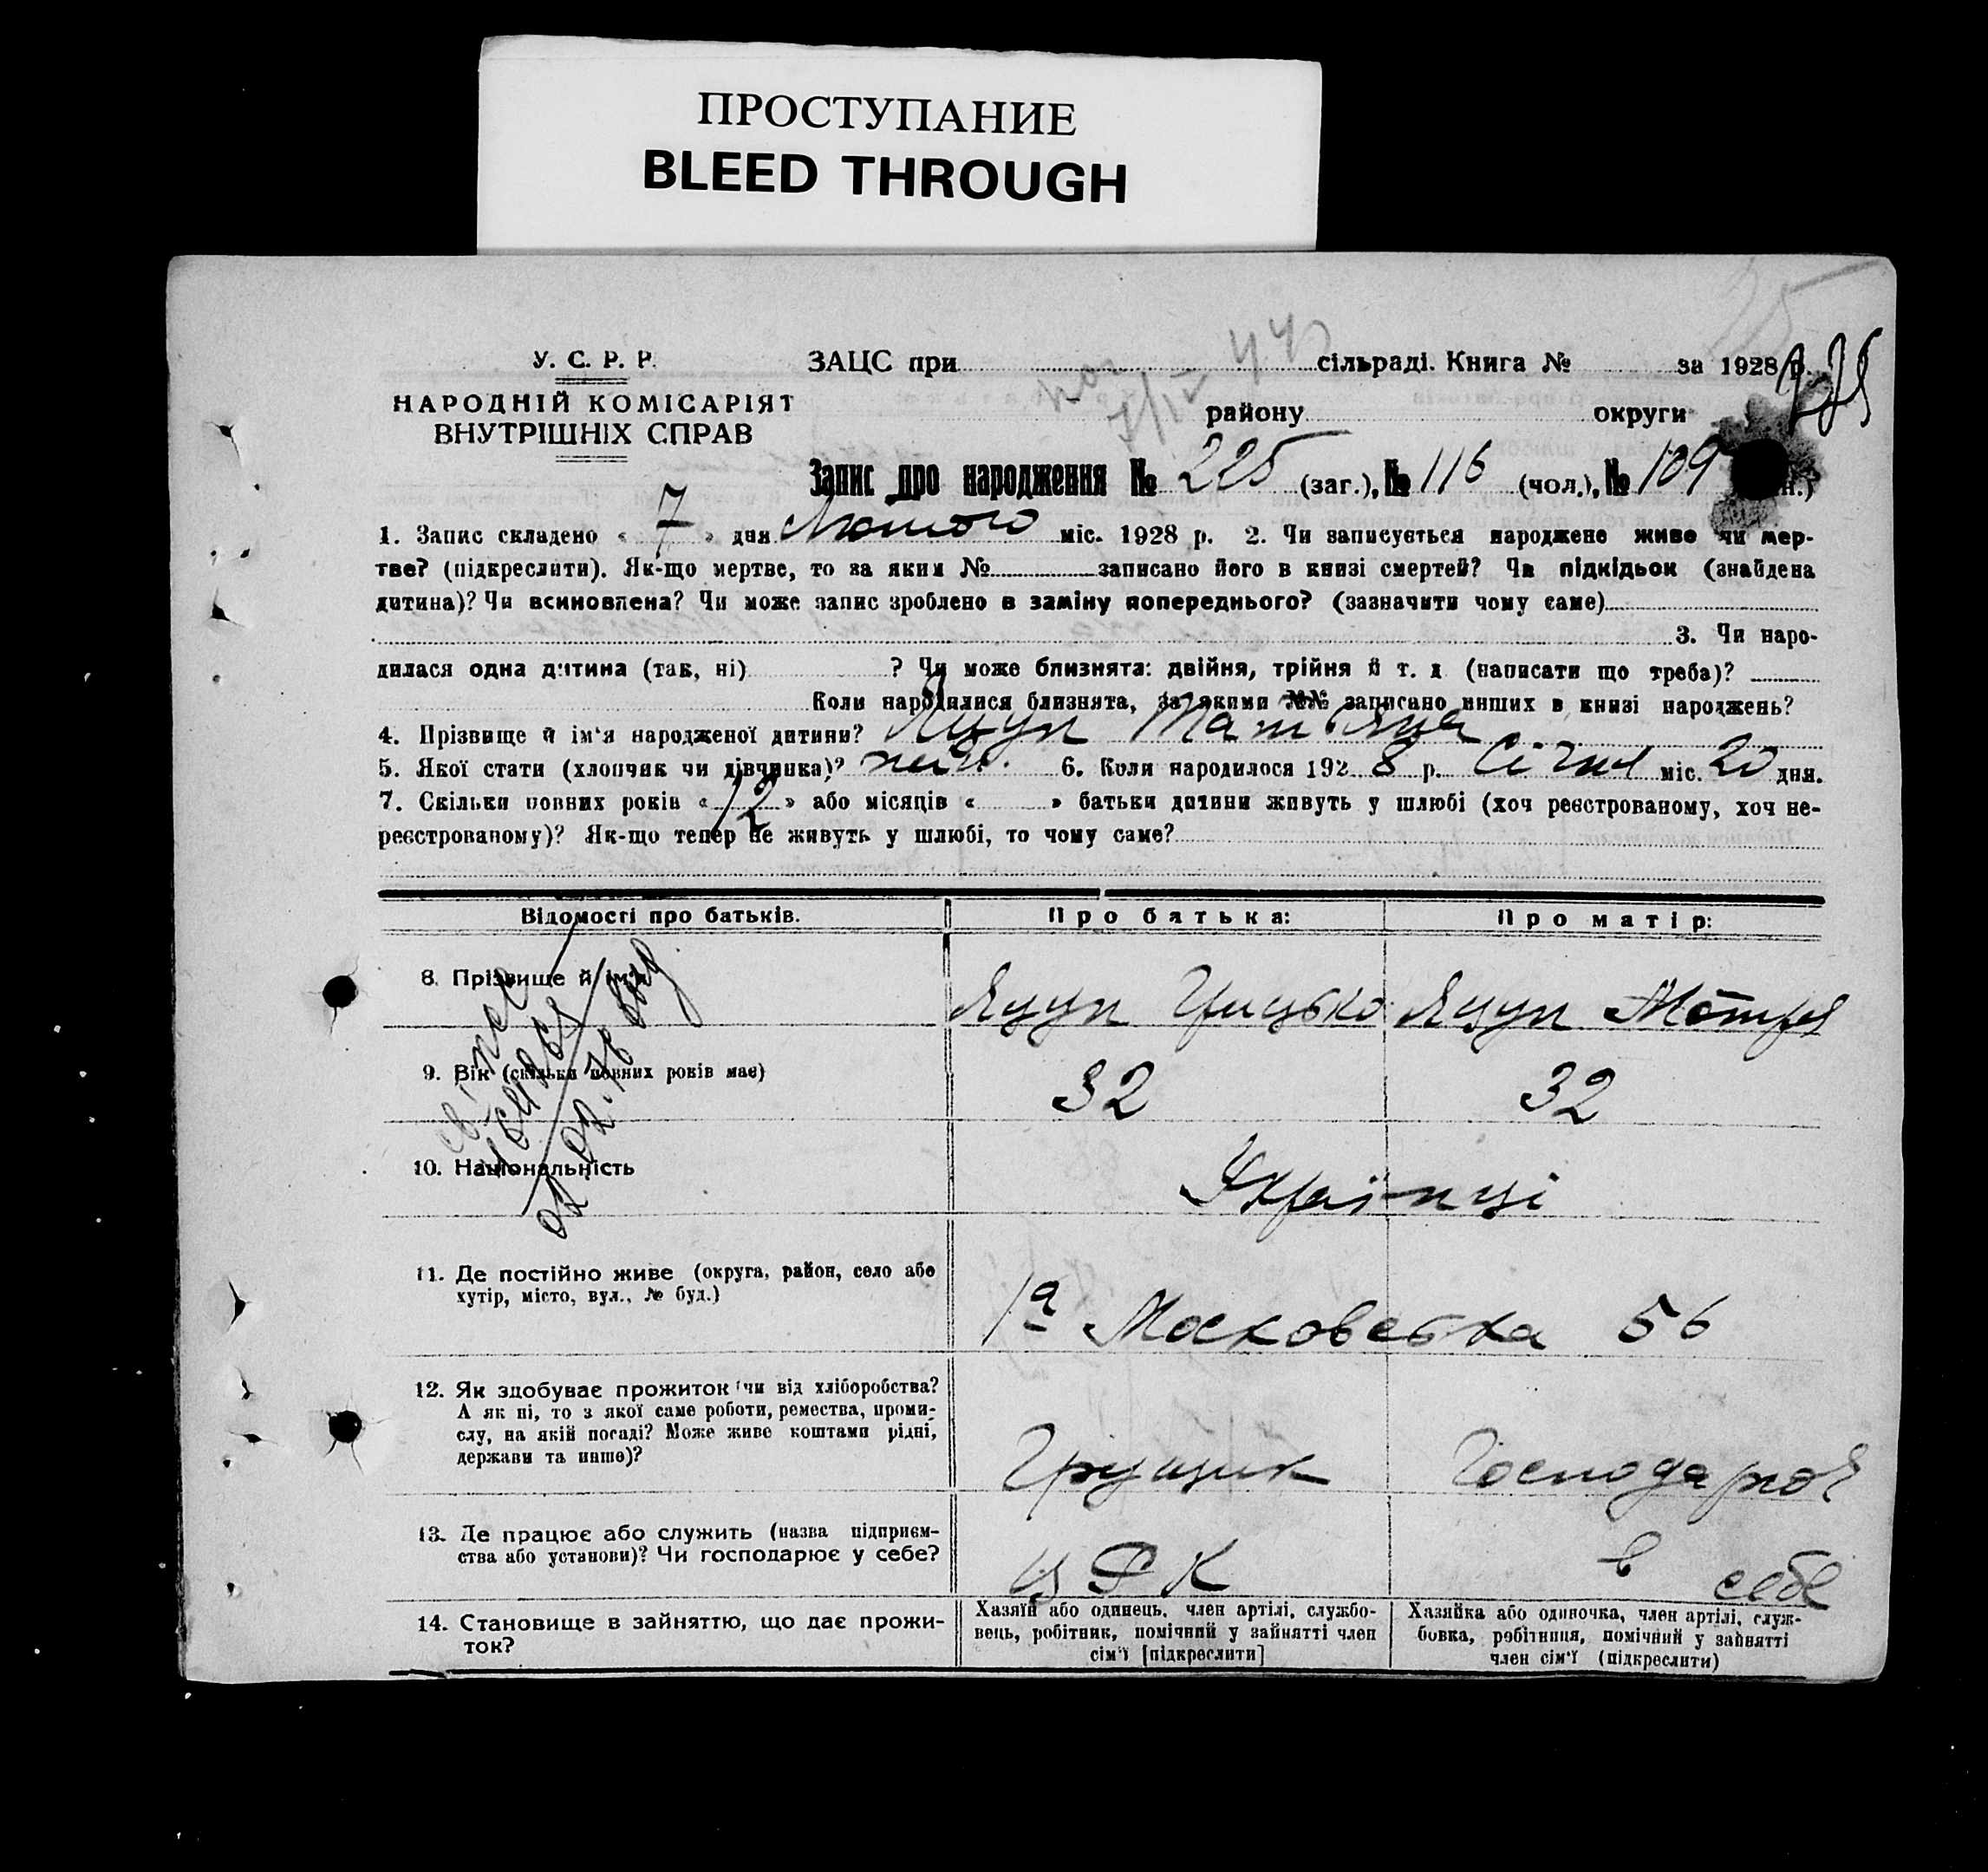 ПРОСТУПАНИЕ
BLEED THROUGH
У. С. Р. Р.
НАРОДНІЙ КОМІСАРІЯТ
ВНУТРІШНІХ СПРАВ
ЗАЦС при сільраді. Книга № за 1928 р.
району округи
Запис про народження № 225 (заг.), № 116 (чол.), № 109
1. Запис складено « 7 » дня Лютого міс. 1928 р. 2. Чи записується народжене живе чи мер-
тве? (підкреслити). Як-що мертве, то за яким № записано його в книзі смертей? Чи підкідьок (знайдена
дитина)? Чи всиновлена? Чи може запис зроблено в заміну попереднього? (зазначити чому саме)
3. Чи наро-
дилася одна дитина (так, ні) ? Чи може близнята: двійня, трійня й т. д. (написати що треба)?
Коли народилися близнята, за якими №№ записано инших в книзі народжень?
4. Прізвище й ім'я народженої дитини? Яцун Татьяна
5. Якої стати (хлопчик чи дівчинка)? 6. Коли народилося 192 8 р. Січня міс. 20 дня.
7. Скільки повних років « 12 » або місяців « » батьки дитини живуть у шлюбі (хоч реєстрованому, хоч не-
реєстрованому)? Як-що тепер не живуть у шлюбі, то чому саме?
Відомості про батьків. Про батька: Про матір:
8. Прізвище й ім'я Яцун Грицько Яцун Мотря
9. Вік (скільки повних років має) 32 32
10. Національність Українці
11. Де постійно живе (округа, район, село або
хутір, місто, вул., № буд.)
1а Московська 56
12. Як здобуває прожиток (чи від хліборобства?
А як ні, то з якої саме роботи, ремества, проми-
слу, на якій посаді? Може живе коштами рідні,
держави та инше)?
Грущик Господарює
13. Де працює або служить (назва підприєм-
ства або установи)? Чи господарює у себе?
ЦРК в себе
14. Становище в зайняттю, що дає прожи-
ток?
Хазяїн або одинець, член артілі, службо-
вець, робітник, помічний у зайнятті член
сім'ї [підкреслити]
Хазяйка або одиночка, член артілі, служ-
бовка, робітниця, помічний у зайнятті
член сім'ї (підкреслити)